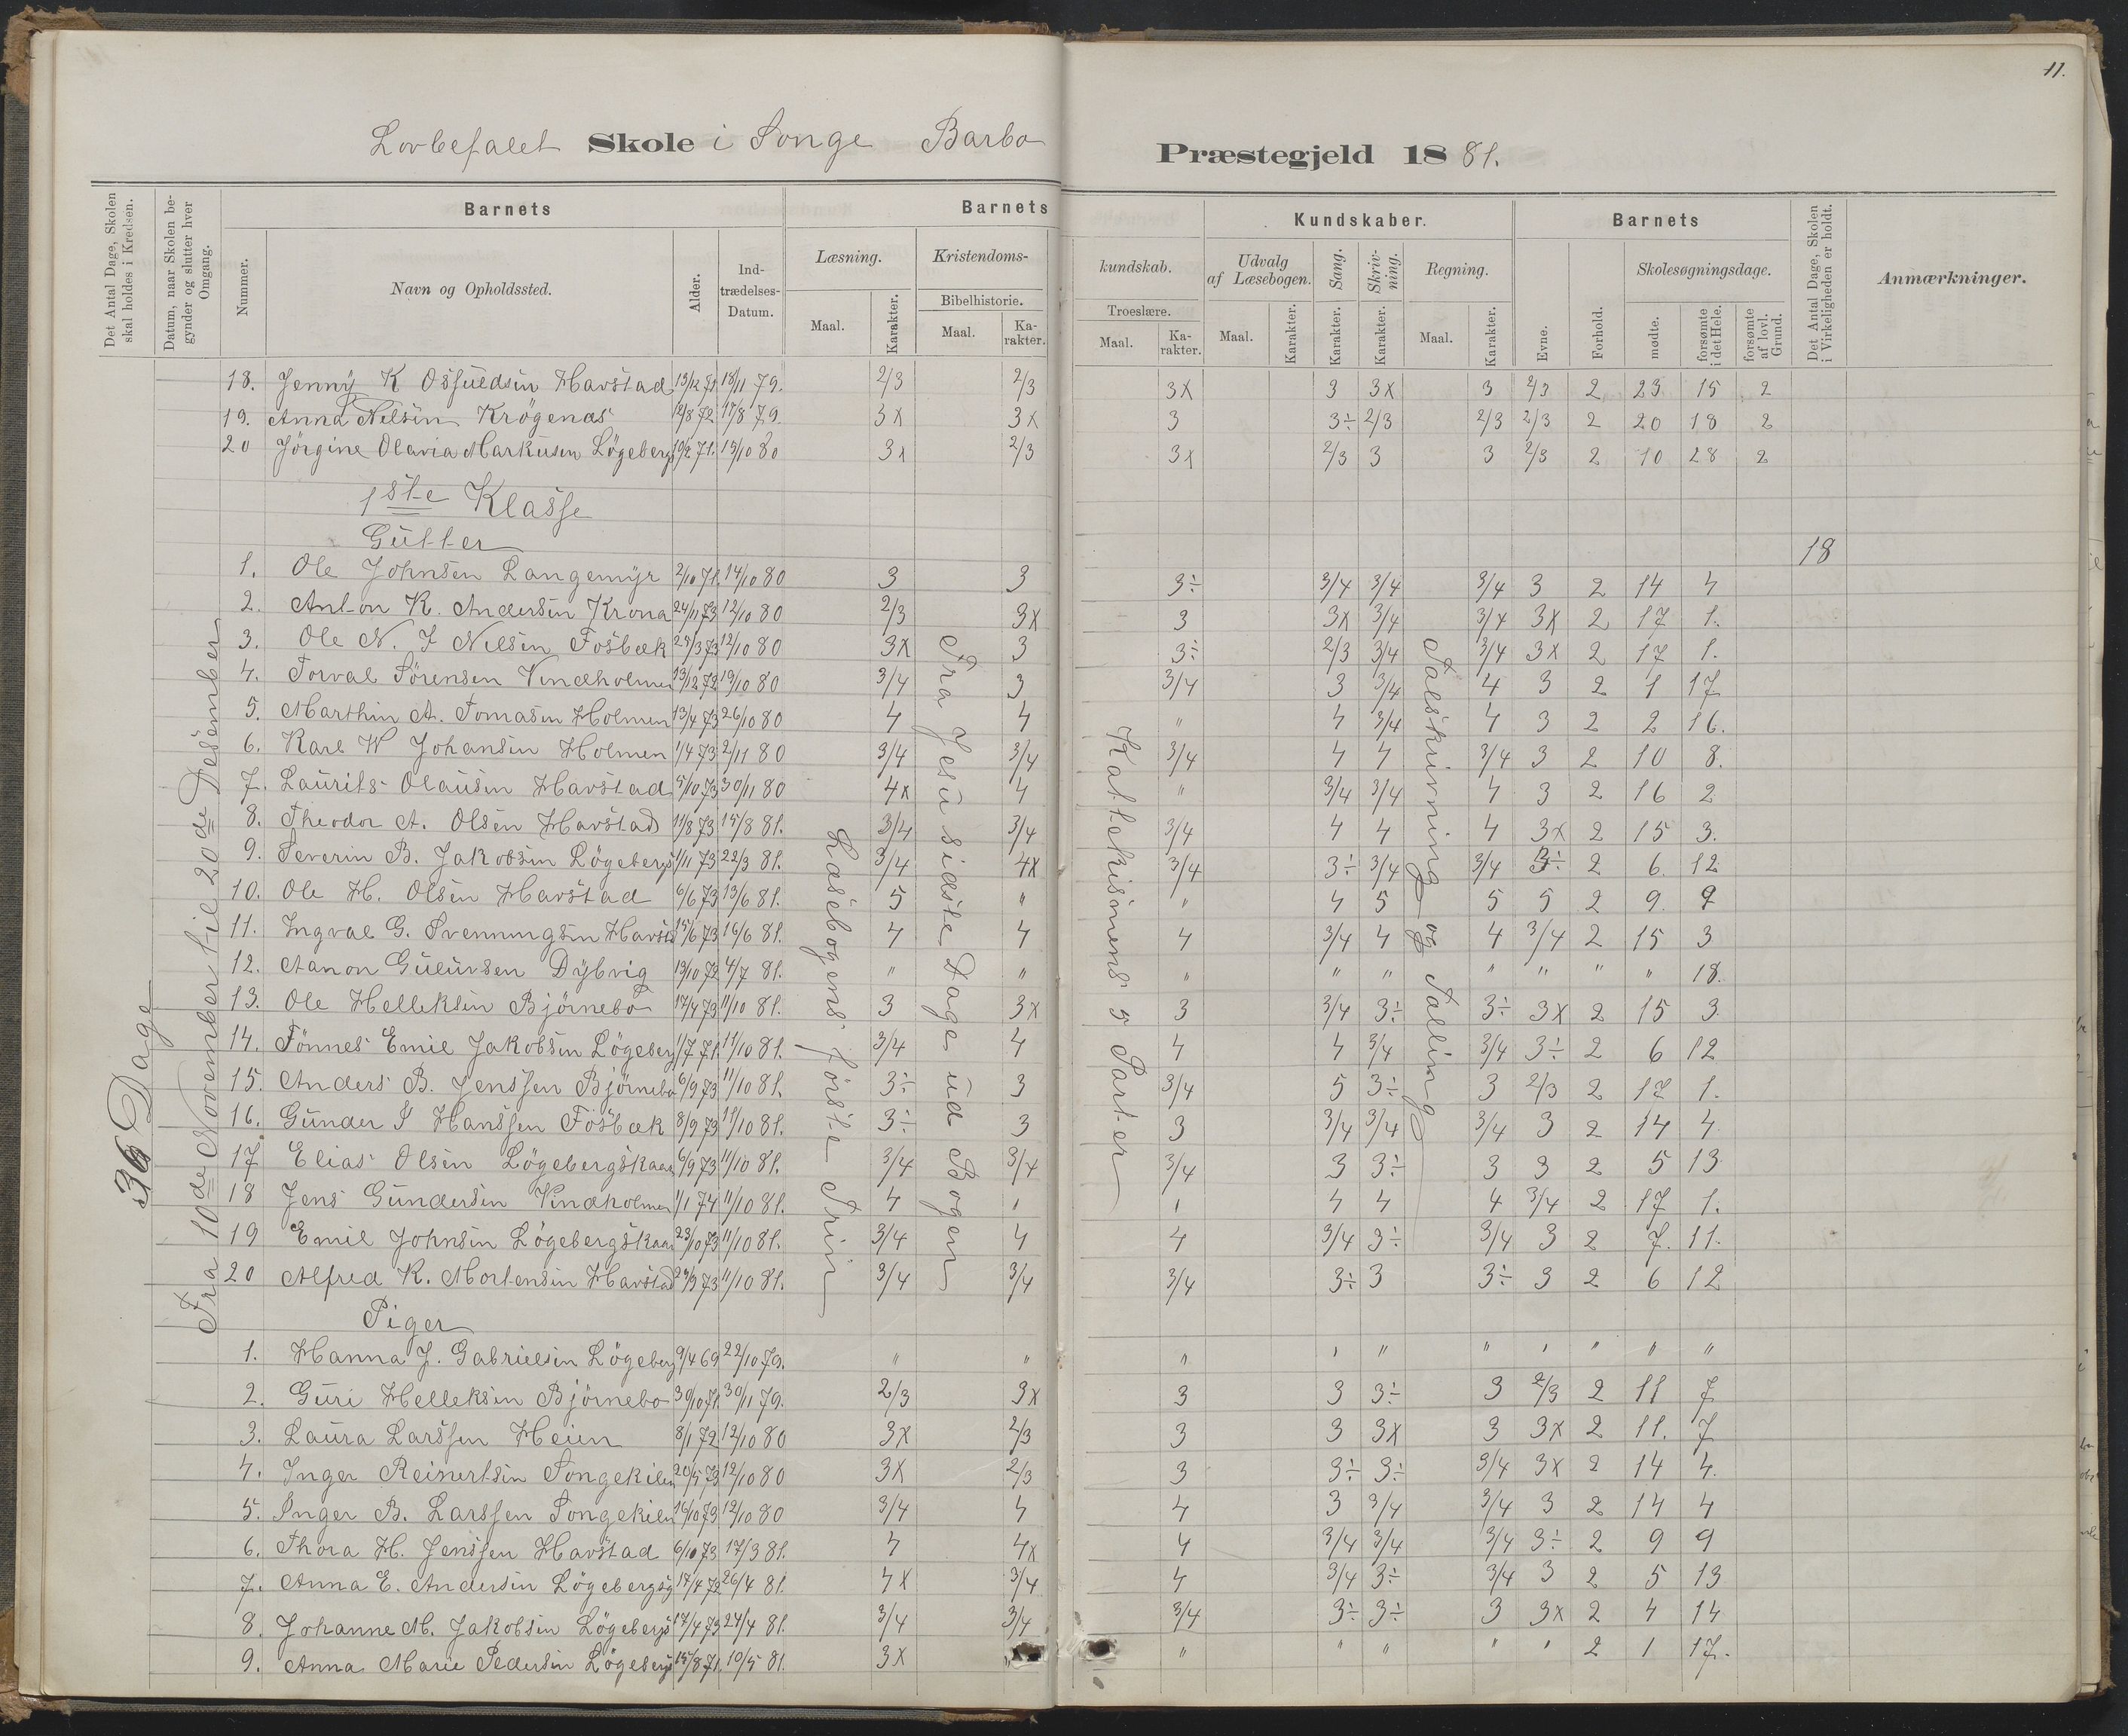 11.
Lovbefalet Skole i Songe Barbo Præstegjeld 1881.
Det Antal Dage, Skolen skal holdes i Kredsen.
Datum, naar Skolen begynder og slutter hver Omgang.
Barnets
Nummer.
Navn og Opholdssted.
Alder.
Indtrædelses-Datum.
Barnets Kundskaber.
Læsning. Maal. Karakter.
Kristendomskundskab.
Bibelhistorie. Maal. Karakter.
Troeslære. Maal. Karakter.
Udvalg af Læsebogen. Maal. Karakter.
Sang. Karakter.
Skrivning. Karakter.
Regning. Maal. Karakter.
Barnets
Evne. Forhold.
Skolesøgningsdage. mødte. forsømte i det Hele. forsømte af lovl. Grund.
Det Antal Dage, Skolen i Virkeligheden er holdt.
Anmærkninger.
18. Jenny K Osfuldsen Havstad 13/12 71 18/11 79. 2/3 2/3 3x 3 3x 3 2/3 2 23 15 2
19. Anna Nilsen Krøgenæs 12/8 72 17/8 79. 3x 3x 3 3÷ 2/3 2/3 2/3 2 20 18 2
20 Jörgine Olavia Markusen Lögeberg 19/2 71. 15/10 80 3x 2/3 3x 2/3 3 3 2/3 2 10 28 2
1ste Klasse
Gutter
18
1. Ole Johnsen Langemyr 2/10 71. 14/10 80 3 3 3÷ 3/4 3/4 3/4 3 2 14 4
2. Anton K. Andersen Krona 24/11 73 12/10 80 2/3 3x 3 3x 3/4 3/4 3x 2 17 1.
3. Ole N. J Nilsen Fosbæk 25/3 73 12/10 80 3x 3 3÷ 2/3 3/4 3/4 3x 2 17 1.
4. Torval Sörensen Vindholmen 13/12 72 19/10 80 3/4 3 3/4 3 3/4 4 3 2 1 17
5. Marthin A. Tomasen Holmen 13/4 73 26/10 80 4 4 " 4 3/4 4 3 2 2 16.
6. Karl W Johansen Holmen 1/4 73 2/11 80 3/4 3/4 3/4 4 4 3/4 3 2 10 8.
7. Laurits Olausen Havstad 5/10 73 30/11 80 4x 4 " 3/4 3/4 4 3 2 16 2
8. Theodor A. Olsen Havstad 11/8 73 15/8 81. 3/4 3/4 3/4 4 4 4 3x 2 15 3.
9. Severin B. Jakobsen Lögeberg 1/11 73 22/3 81. 3/4 4x 3/4 3÷ 3/4 3/4 3÷ 2 6. 12
10. Ole H. Olsen Havstad 6/6 73 13/6 81. 5 " " 4 5 5 5 2 9. 9
11. Ingval G. Svenningsen Havstd 15/6 73 16/6 81. 4 4 4 3/4 4 4 3/4 2 15 3
12. Aanon Gulursen Dybvig 13/10 72 4/7 81. " " " " " " " " " 18.
13. Ole Helleksen Björnebo 17/4 73 11/10 81. 3 3x 3 3/4 3÷ 3÷ 3x 2 15 3
14. Tönnes Emil Jakobsen Lögeberg 1/7 71. 11/10 81. 3/4 4 4 4 3/4 3/4 3÷ 2 6 12
15. Anders B. Jenssen Björnebo 6/9 73 11/10 81. 3÷ 3 3/4 5 3÷ 3 2/3 2 17 1.
16. Gunder S Hanssen Fosbæk 8/9 73 11/10 81. 3÷ 3 3 3/4 3/4 3/4 3 2 14 4
17 Elias Olsen Lögebergskaar 6/9 73 11/10 81. 3/4 3/4 3/4 3 3÷ 3 3 2 5 13
18 Jens Gundersen Vindholmen 1/1 74 11/10 81. 4 " " 4 4 4 3/4 2 17 1.
19 Emil Johnsen Lögebergskaar 23/10 73 11/10 81. 3/4 4 4 3/4 3÷ 3/4 3 2 7. 11.
20 Alfred K. Mortensen Havstad 29/9 73 11/10 81. 3/4 3/4 3/4 3÷ 3 3÷ 3 2 6 12
Piger
1. Hanna J. Gabrielsen Lögeberg 9/4 69 22/10 79. " " " " " " " " " "
2. Guri Helleksen Björnebo 30/10 71. 30/11 79. 2/3 3x 3 3 3÷ 3 2/3 2 11 7
3. Laura Larssen Heien 8/1 72 12/10 80 3x 2/3 3 3 3x 3 3x 2 11. 7
4. Inger Reinertsen Songekilen 20/5 73 12/10 80 3x 2/3 3 3÷ 3÷ 3/4 3x 2 14 4.
5. Inger B. Larssen Songekilen 16/10 73 12/10 80 3/4 4 4 3 3/4 3/4 3 2 14 4
6. Thora H. Jenssen Havstad 6/10 73 17/3 81. 4 4x 4 3/4 3/4 3/4 3÷ 2 9 9
7. Anna E. Andersen Lögeberg 17/4 72 26/4 81. 4x 3/4 4 3/4 3÷ 3/4 3 2 5 13
8. Johanne M. Jakobsen Lögeberg 17/4 73 24/4 81. 3/4 3/4 3/4 3÷ 3÷ 3 3x 2 4 14
9. Anna Marie Pedersen Lögeberg 15/8 71. 10/5 81. 3x " " " " " " 2 1 17.
36 Dage
Fra 10de November til 20de Desember
Læsebogens förste Trin
Fra Jesu sidste Dage ud Bogen
Kattekismens 5 Parter
Talskrivning og Talling